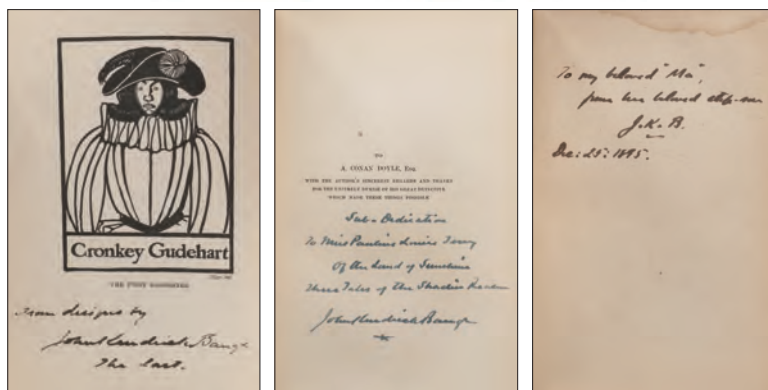 Cronkey Gudehart
from designs by
John Kendrick Bangs
The Last.
TO
A. CONAN DOYLE, Esq.
WITH THE AUTHOR'S SINCEREST REGARDS AND THANKS
FOR THE UNTIMELY DEMISE OF HIS GREAT DETECTIVE
WHICH MADE THESE THINGS POSSIBLE
Sub-Dedication
To Miss Pauline Louise
Of the Land of Sunshine
These Tales of the Shadier Realm
John Kendrick Bangs
To my beloved "Ma",
from her beloved step-son
J.K.B.
Dec: 25: 1895.